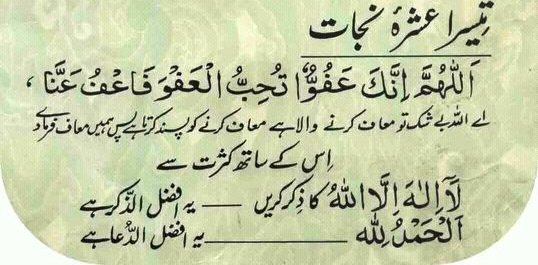 تیسرا عشرۂ نجات
اَللّٰهُمَّ اِنَّكَ عَفُوٌّ تُحِبُّ الْعَفْوَ فَاعْفُ عَنَّا ،
اے اللہ بے شک تو معاف کرنے والا ہے معاف کرنے کو پسند کرتا ہے پس ہمیں معاف فرمادے
اِس کے ساتھ کثرت سے
لَآ اِلٰهَ اِلَّا اللهُ کا ذکر کریں — یہ افضل الذّکر ہے
اَلْحَمْدُ لِلّٰه ——— یہ افضل الدُّعا ہے